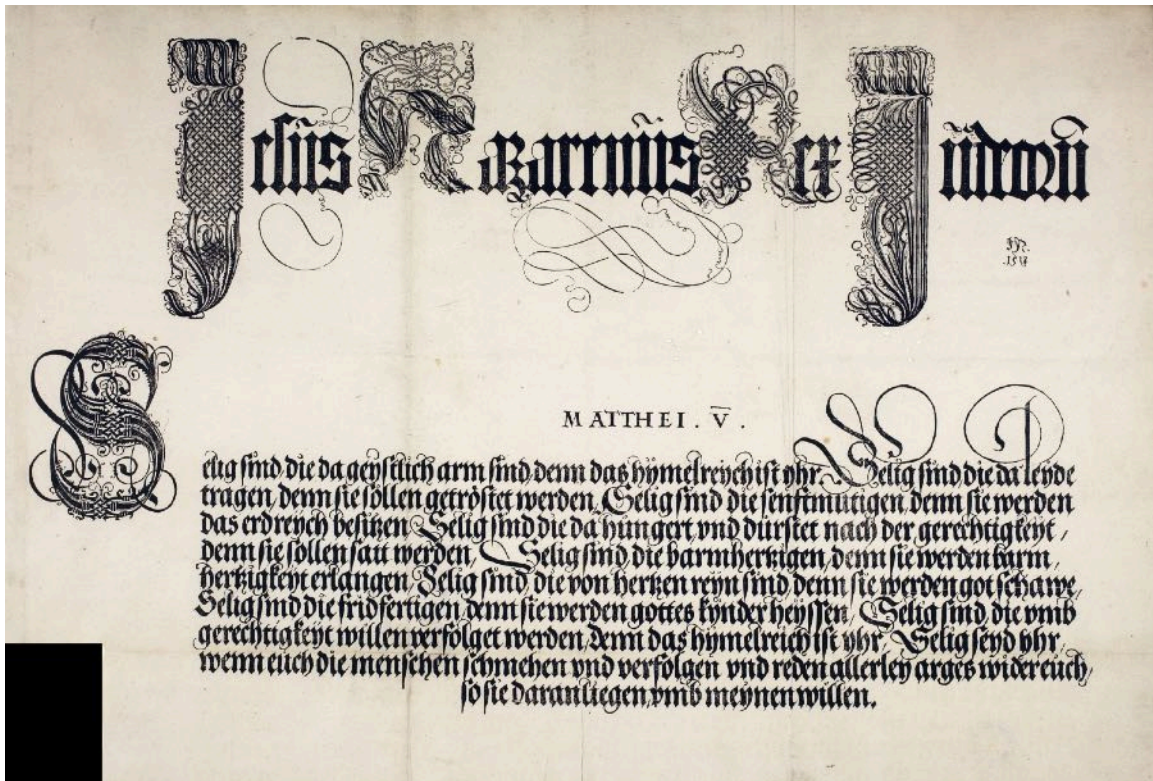 Jesus Nazarenus Rex Judeorū
MATTHEI . V̄ .
Selig sind die da geystlich arm sind, denn das hymelreych ist yhr, Selig sind die da leyde
tragen, denn sie sollen getröstet werden, Selig sind die senftmutigen, denn sie werden
das erdreych besitzen, Selig sind die da hungert vnd dürstet nach der gerechtigkeyt /
denn sie sollen satt werden, Selig sind die barmhertzigen, denn sie werden barm /
hertzigkeyt erlangen, Selig sind, die von hertzen reyn sind denn sie werden got schawe,
Selig sind die fridfertigen denn sie werden gottes kynder heyssen, Selig sind die vmb
gerechtigkeyt willen verfolget werden, denn das hymelreich ist yhr, Selig seyd yhr,
wenn euch die menschen schmehen vnd verfolgen vnd reden allerley arges wider euch /
so sie daran liegen, vmb meynen willen.